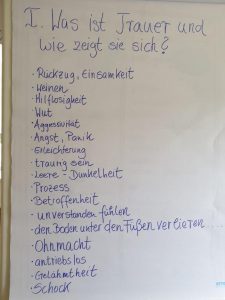 I. Was ist Trauer und
wie zeigt sie sich?
· Rückzug, Einsamkeit
· Weinen
· Hilflosigkeit
· Wut
· Aggressivität
· Angst, Panik
· Erleichterung
· traurig sein
· Leere - Dunkelheit
· Prozess
· Betroffenheit
· unverstanden fühlen
· den Boden unter den Füßen verlieren...
· Ohnmacht
· antriebslos
· Gelähmtheit
· Schock